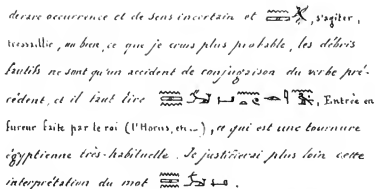 derare occurrence et de sens incertain et, s'agiter,
tressaillir, ou bien, ce que je crois plus probable, les débris
fautifs ne sont qu'un accident de conjugaison du verbe pré-
cédent, et il faut lire, Entrée en
fureur faite par le roi (l'Horus, en...), ce qui est une tournure
égyptienne très-habituelle. Je justifierai plus loin cette
interprétation du mot.